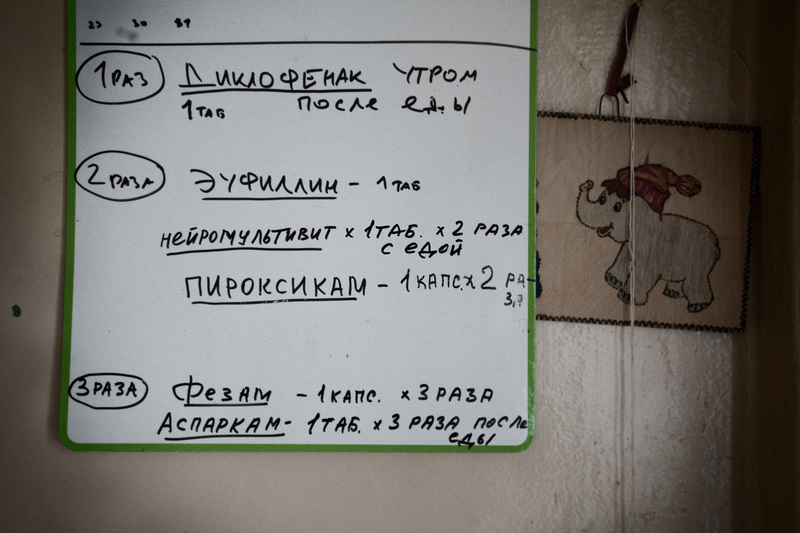 23 30 37
1 РАЗ ДИКЛОФЕНАК УТРОМ
1 ТАБ ПОСЛЕ ЕДЫ
2 РАЗА ЭУФИЛЛИН - 1 ТАБ
НЕЙРОМУЛЬТИВИТ х 1 ТАБ. х 2 РАЗА
С ЕДОЙ
ПИРОКСИКАМ - 1 КАПС. х 2 РА-
ЗА
3 РАЗА ФЕЗАМ - 1 КАПС. х 3 РАЗА
АСПАРКАМ - 1 ТАБ. х 3 РАЗА ПОСЛЕ
ЕДЫ